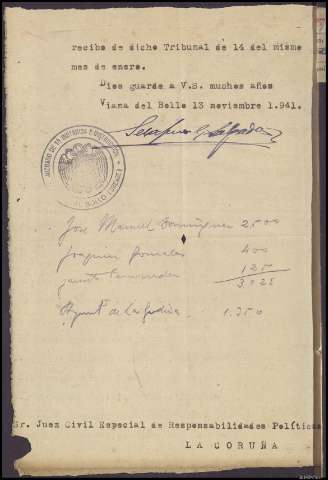 recibo de dicho Tribunal de 14 del mismo
mes de enero.
Dios guarde a V.S. muchos años
Viana del Bollo 13 noviembre 1.941.
JUZGADO DE 1ª INSTANCIA E INSTRUCCION
José Manuel Dominguez 2500
Joaquin Gonzalez 400
125
3025
1.250
Sr. Juez Civil Especial de Responsabilidades Políticas
LA CORUÑA